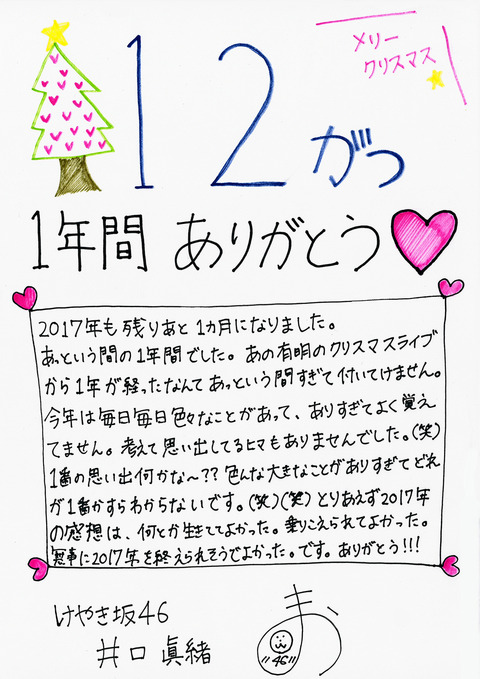 メリー
クリスマス
12がつ
1年間 ありがとう
2017年も残りあと1カ月になりました。
あっという間の1年間でした。あの有明のクリスマスライブ
から1年が経ったなんてあっという間すぎて付いてけません。
今年は毎日毎日色々なことがあって、ありすぎてよく覚え
てません。考えて思い出してるヒマもありませんでした。(笑)
1番の思い出何かな~??色んな大きなことがありすぎてどれ
が1番かすらわからないです。(笑)(笑)とりあえず2017年
の感想は、何とか生きてしてよかった。乗りこえられてよかった。
無事に2017年を終えられそうでよかった。です。ありがとう!!!
けやき坂46
井口眞緒
まお
"46"